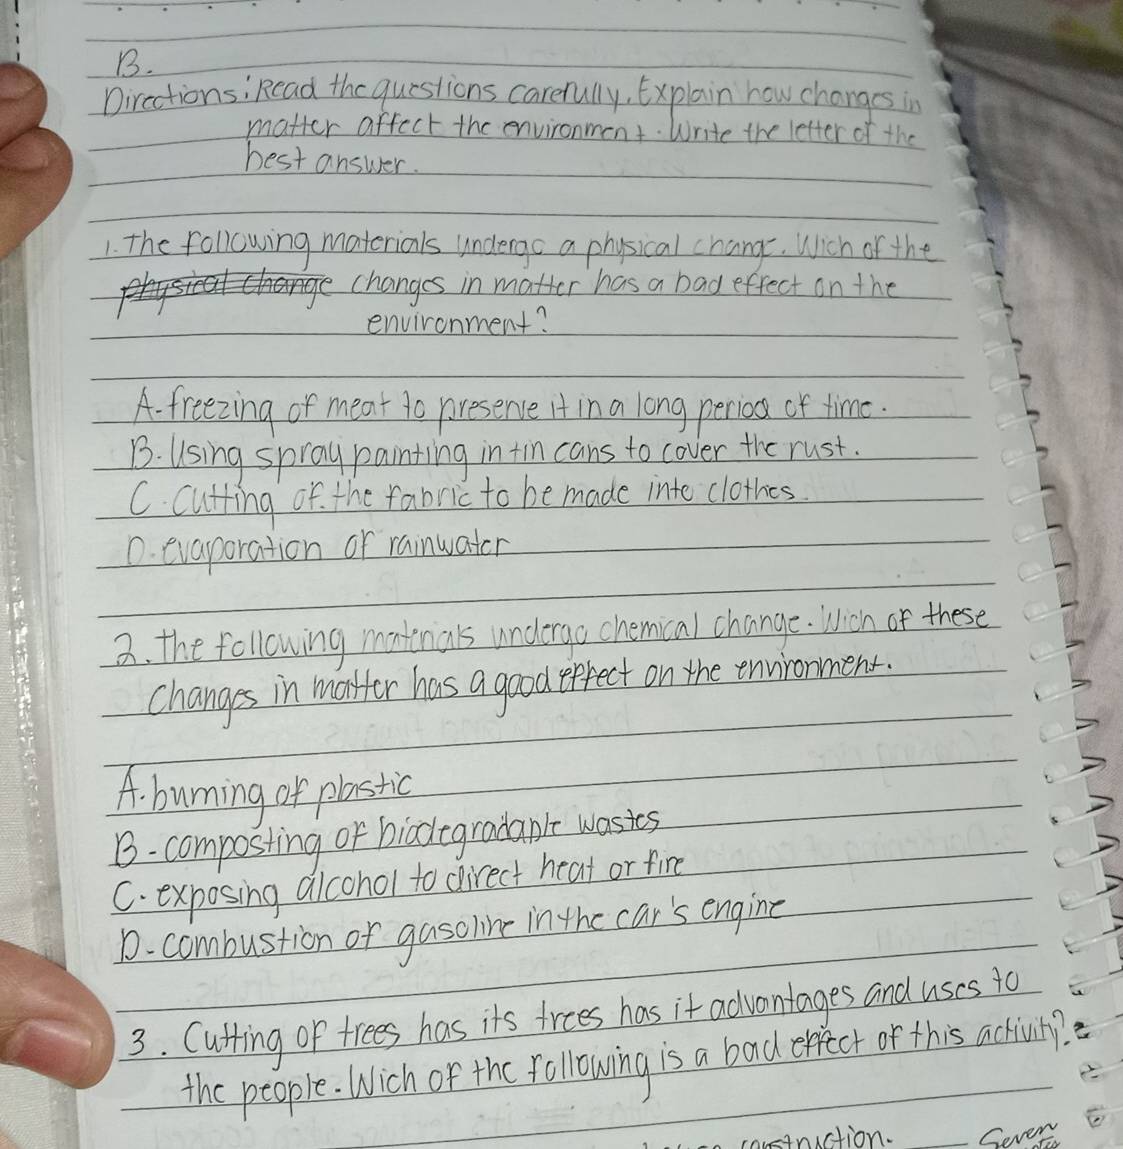 B.
Directions: Read the questions carefully. Explain how changes in
matter affect the environment. Write the letter of the
best answer.
1. The following materials undergo a physical change. Wich of the
physical change changes in matter has a bad effect on the
environment?
A. freezing of meat to preserve it in a long period of time.
B. Using spray painting in tin cans to cover the rust.
C. Cutting of the fabric to be made into clothes.
D. evaporation of rainwater
2. The following materials undergo chemical change. Wich of these
changes in matter has a good effect on the environment.
A. burning of plastic
B. composting of biodegradable wastes
C. exposing alcohol to direct heat or fire
D. combustion of gasoline in the car's engine
3. Cutting of trees has its trees has it advantages and uses to
the people. Wich of the following is a bad effect of this activity?
construction. Seven